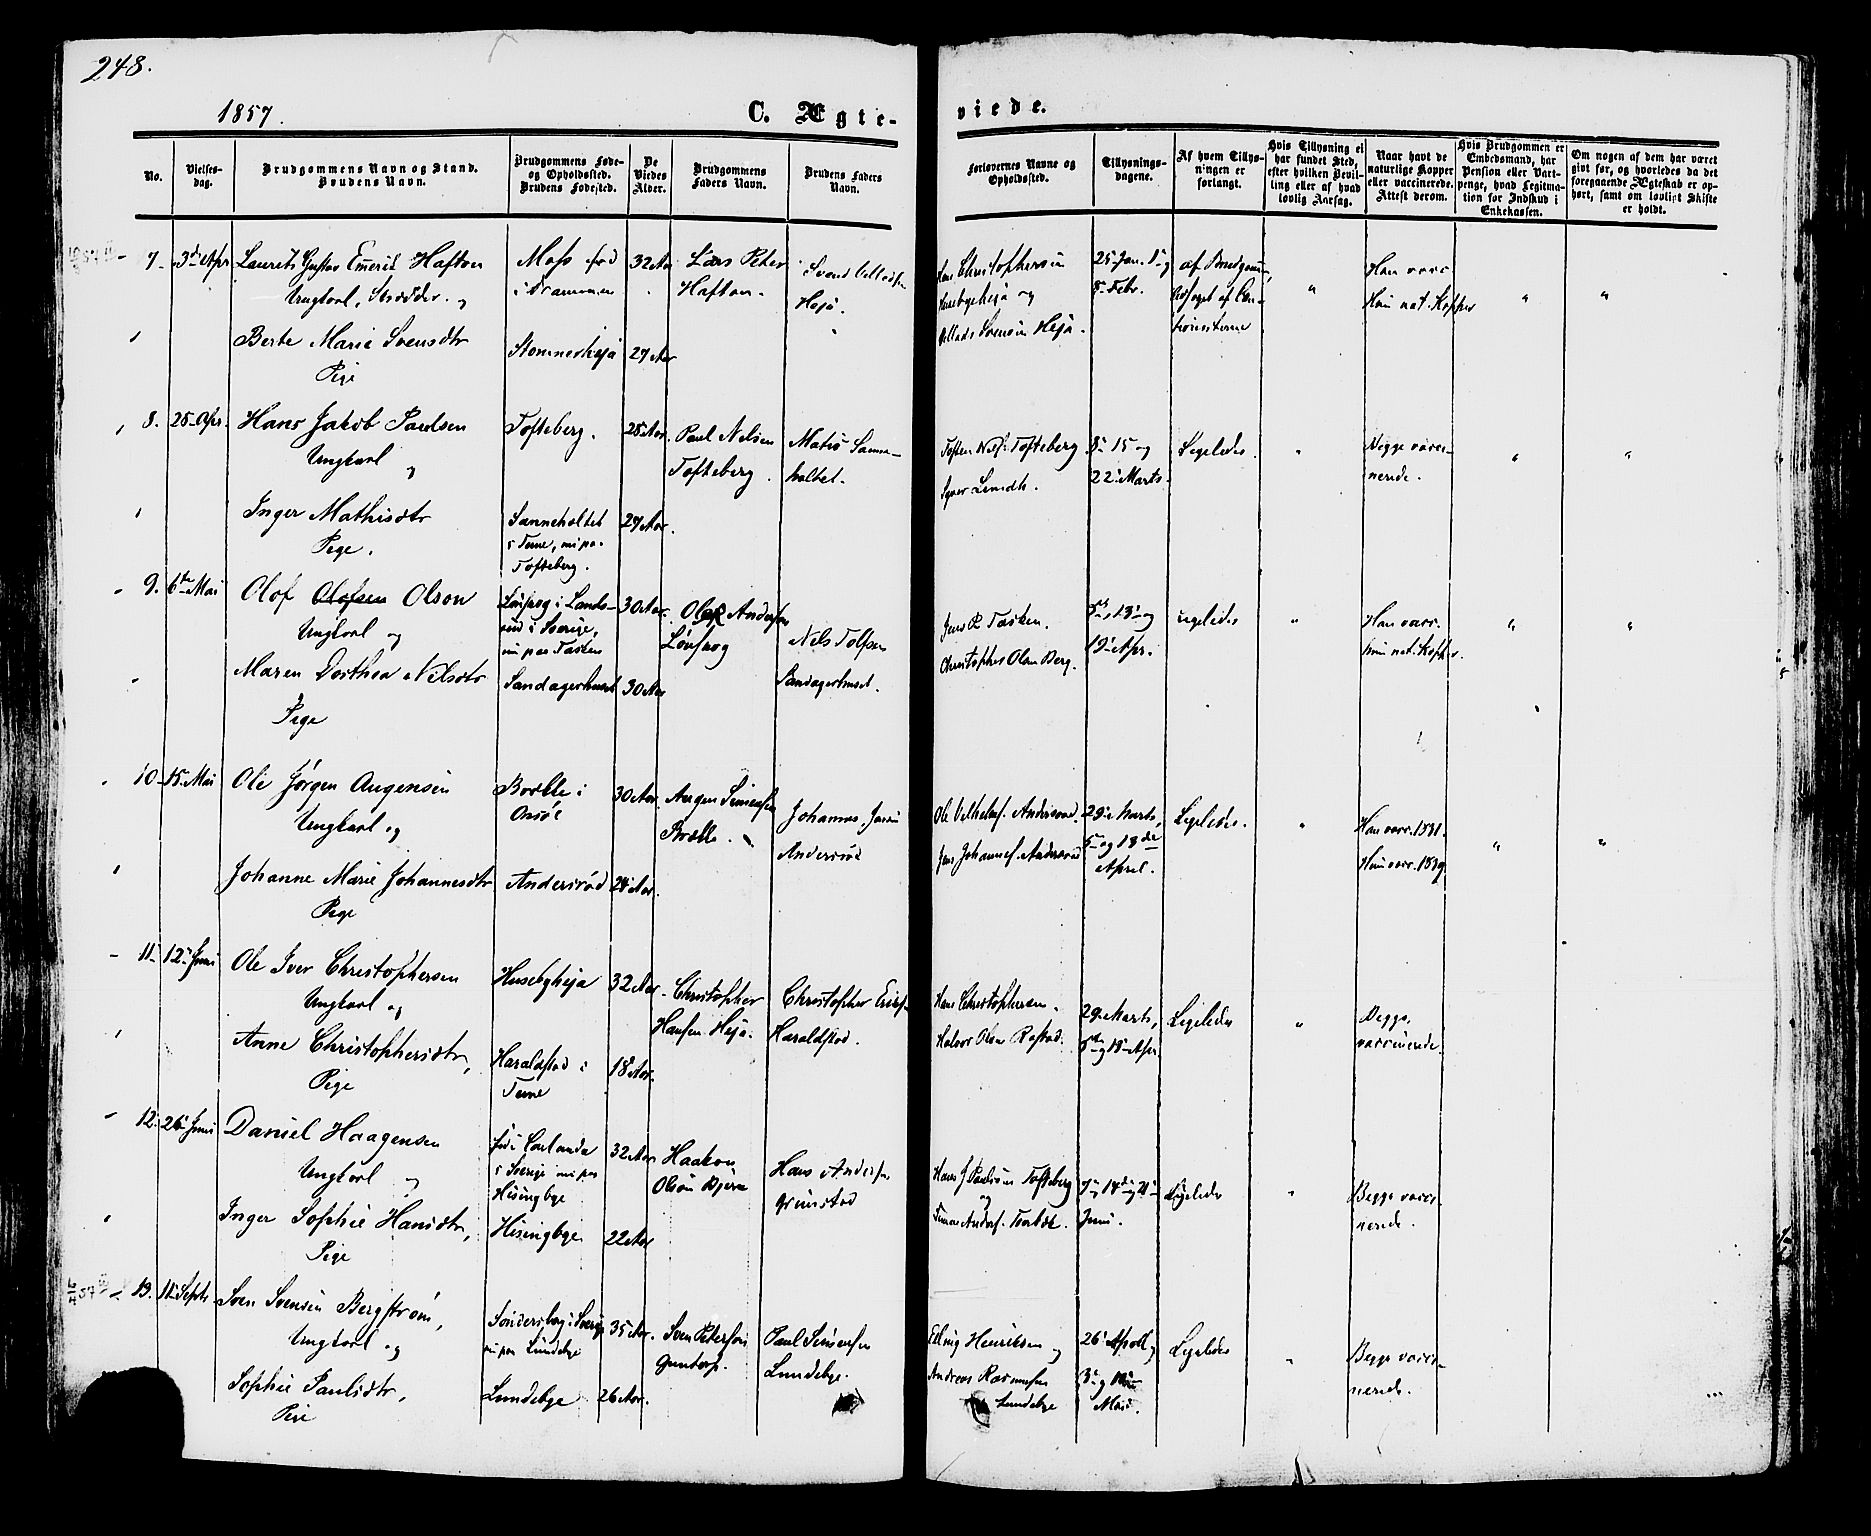 248.
1857.
C. Ægte-
viede.
No.
Vielses-
dag.
Brudgommens Navn og Stand.
Brudens Navn.
Brudgommens Føde-
og Opholdssted.
Brudens Fødested.
De
Viedes
Alder.
Brudgommens
Faders Navn.
Brudens Faders
Navn.
Forlovernes Navne og
Opholdssted.
Tillysnings-
dagene.
Af hvem Tillys-
ningen er
forlangt.
Hvis Tillysning ei
har fundet Sted,
efter hvilken Bevil-
ling eller af hvad
lovlig Aarsag.
Naar havt de
naturlige Kopper
eller vaccinerede.
Attest derom.
Hvis Brudgommen er
Embedsmand, har
Pension eller Vart-
penge, hvad Legitima-
tion for Indskud i
Enkekassen.
Om nogen af dem har været
givt før, og hvorledes da det
foregaaende Ægteskab er op-
hørt, samt om lovligt Skifte
er holdt.
7. 3die Apr
Laurits Gustav Emeril Hafton
Ungkarl, Skrædder og
Moss fød
i Drammen
32 Aar
Lars Peter
Hafton.
Svend Villadsen
Hejø.
Hans Christophersen
Husebyehejø og
Villads Svensen Hejø.
25 Jan. 1 og
8 Febr.
af Brudgommen,
Han vacc.
Hun nat. Kopper
Berte Marie Svensdtr
Pige
Stommerhejø
27 Aar
8. 28 Apr.
Hans Jakob Paulsen
Ungkarl
og
Tofteberg.
28 Aar.
Paul Nelsen
Tofteberg.
Matis Sanne-
holtet.
Tosten Tofteberg
Iver Lunde.
8 15 og
22 Marts.
Ligeledes.
Begge vacci-
nerede.
Inger Mathisdtr
Pige.
Sanneholtet
i Terne,
Tofteberg.
27 Aar.
9. 6te Mai
Olof Olofsen Olson
Ungkarl og
i Sverige,
30 Aar.
Olof Andersen
Nils Tolfsen
Sandagerhuset.
Jens P. Tasken.
Christopher Olsen Berg.
5te, 13 og
19 Apr.
Ligeledes
Han vacc.
hun nat. Kopper.
Maren Dorthea Nilsdtr
Pige
Sandagerhuset
30 Aar
10. 15. Mai
Ole Jørgen Augensen
Ungkarl og
Brække i
Onsøe
30 Aar.
Augen Simensen
Brække.
Johannes Jensen
Andersrød
Ole Vilhelms. Andersrød.
Jens Johannes. Andersrød
29 Marts,
5 og 13de
April.
Ligeledes.
Han vacc. 1831.
Hun vacc. 1839.
Johanne Marie Johannesdtr
Pige
Andersrød
24 Aar.
11. 12 Juni
Ole Iver Christophersen
Ungkarl og
Husebyhejø
32 Aar.
Christopher
Hansen Hejø.
Christopher Erics.
Haraldstad.
Hans Christophersen.
Halvor Olsen Rostad.
29 Marts,
5te og 13 Apr.
Ligeledes
Begge
vaccinerede.
Anne Christophersdtr,
Pige
Haraldstad i
Terne
18 Aar.
12. 26 Juni
Daniel Haagensen
Ungkarl
og
i Sverige
Hisingbye
32 Aar
Haakon
Olsen Bjerne
Hans Andersen
Grimstad
Hans J. Paulsen Tofteberg
og
7 og 14de og 21
Juni.
Ligeledes
Begge vacci-
nerede.
Inger Sophie Hansdtr,
Pige
Hisingbye
22 Aar
13. 11 Septr.
Sven Svensen Bergstrøm,
Ungkarl og
i Sverige
Lundebye
35 Aar.
Sven Petersen
Guntorp.
Paul Simensen
Lundebye.
Edling Henriksen og
Andreas Rasmussen
Lundebye
26 April
3 og 10
Mai.
Ligeledes
Begge vacci-
nerede.
Sophie Paulsdtr,
Pige
Lundebye
26 Aar.